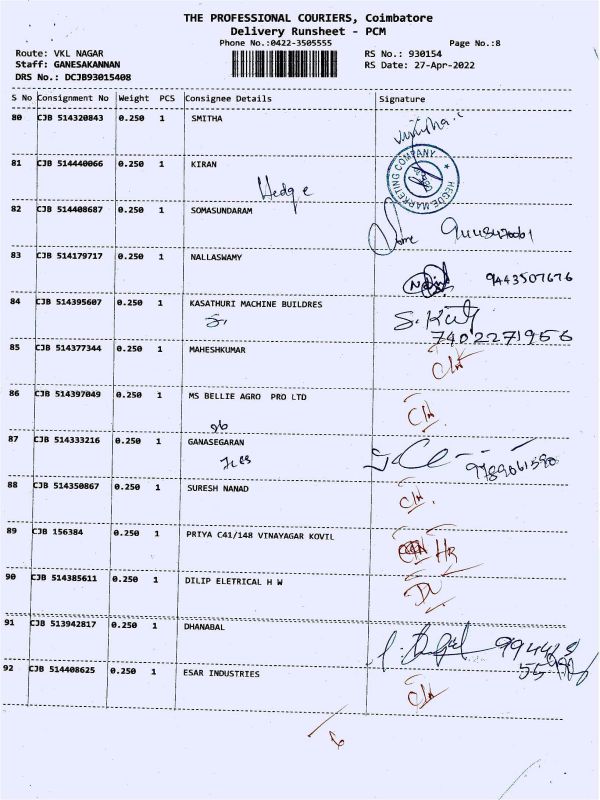 THE PROFESSIONAL COURIERS, Coimbatore
Delivery Runsheet - PCM
Phone No.:0422-3505555 Page No.:8
Route: VKL NAGAR RS No.: 930154
Staff: GANESAKANNAN RS Date: 27-Apr-2022
DRS No.: DCJB93015408
S No Consignment No Weight PCS Consignee Details Signature
80 CJB 514320843 0.250 1 SMITHA
81 CJB 514440066 0.250 1 KIRAN
HEGDE MARKETING COMPANY
Hedge
82 CJB 514408687 0.250 1 SOMASUNDARAM
83 CJB 514179717 0.250 1 NALLASWAMY
9443507676
84 CJB 514395607 0.250 1 KASATHURI MACHINE BUILDRES
7402271956
85 CJB 514377344 0.250 1 MAHESHKUMAR
86 CJB 514397049 0.250 1 MS BELLIE AGRO PRO LTD
87 CJB 514333216 0.250 1 GANASEGARAN
9789061590
88 CJB 514350867 0.250 1 SURESH NANAD
89 CJB 156384 0.250 1 PRIYA C41/148 VINAYAGAR KOVIL
90 CJB 514385611 0.250 1 DILIP ELETRICAL H W
91 CJB 513942817 0.250 1 DHANABAL
92 CJB 514408625 0.250 1 ESAR INDUSTRIES